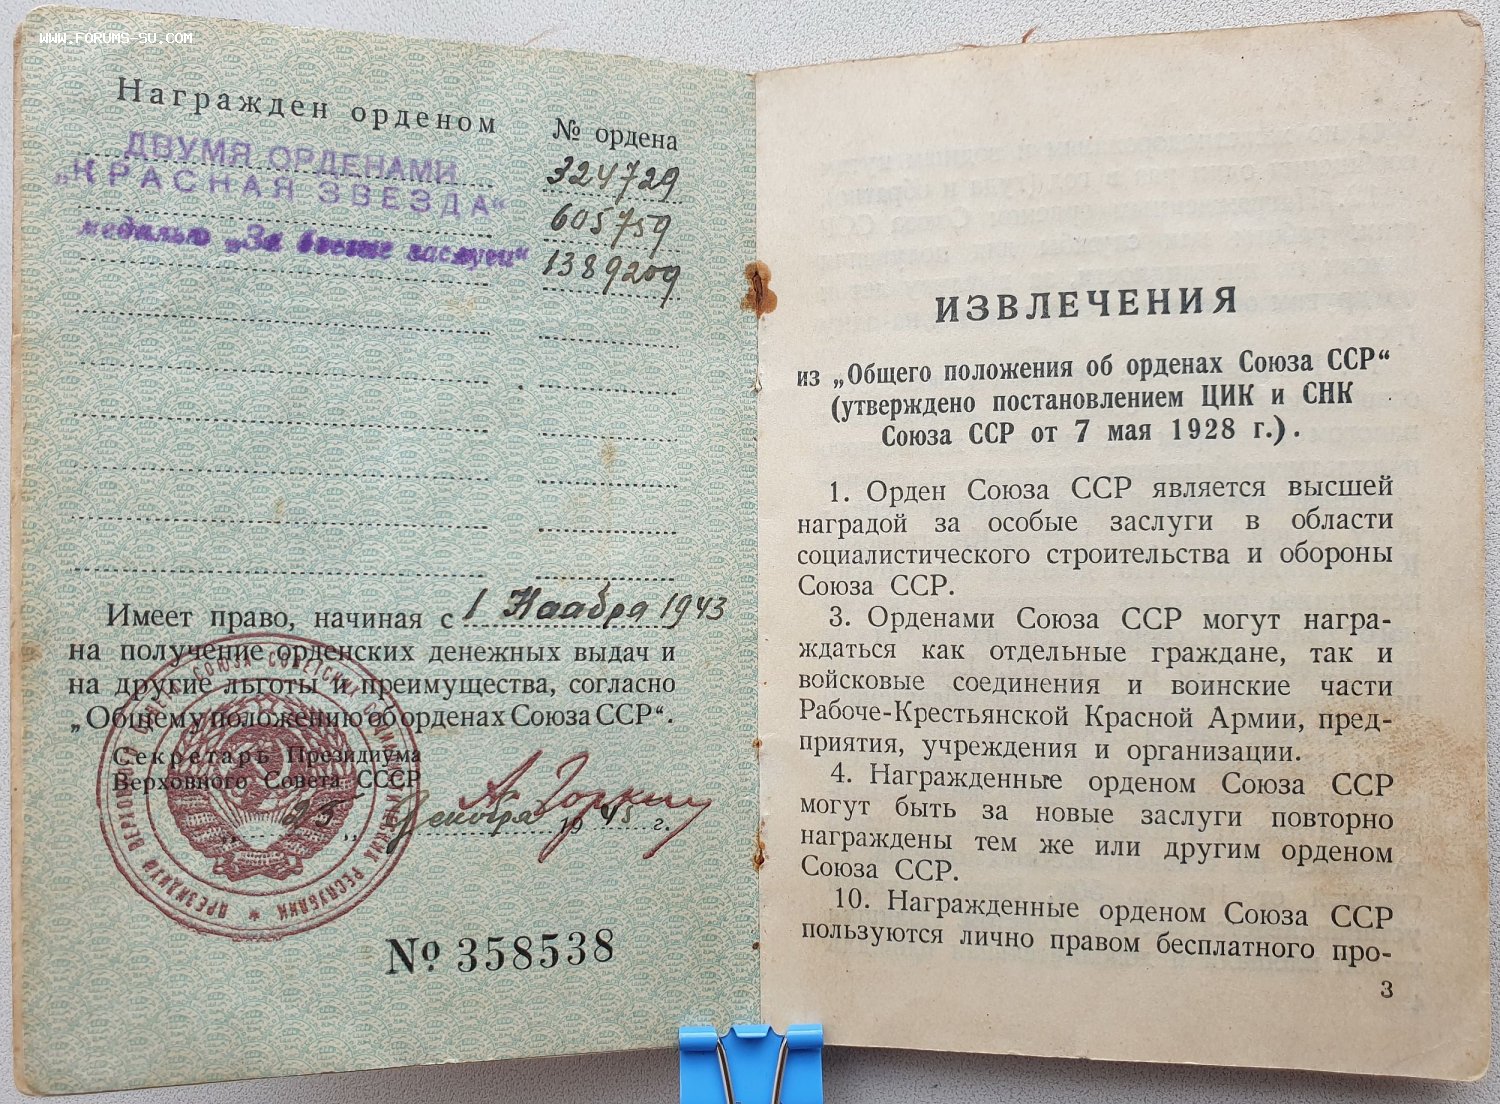 www.forums-su.com
Награжден орденом
№ ордена
ДВУМЯ ОРДЕНАМИ
324729
„КРАСНАЯ ЗВЕЗДА“
605759
медалью „За боевые заслуги“
1389209
Имеет право, начиная с 1 Ноября 1943
на получение орденских денежных выдач и
на другие льготы и преимущества, согласно
„Общему положению об орденах Союза ССР“.
Секретарь Президиума
Верховного Совета СССР
А. Горкин
„25„ декабря 1945 г.
ПРЕЗИДИУМ ВЕРХОВНОГО СОВЕТА СОЮЗА СОВЕТСКИХ СОЦИАЛИСТИЧЕСКИХ РЕСПУБЛИК
№ 358538
ИЗВЛЕЧЕНИЯ
из „Общего положения об орденах Союза ССР“
(утверждено постановлением ЦИК и СНК
Союза ССР от 7 мая 1928 г.).
1. Орден Союза ССР является высшей
наградой за особые заслуги в области
социалистического строительства и обороны
Союза ССР.
3. Орденами Союза ССР могут награ-
ждаться как отдельные граждане, так и
войсковые соединения и воинские части
Рабоче-Крестьянской Красной Армии, пред-
приятия, учреждения и организации.
4. Награжденные орденом Союза ССР
могут быть за новые заслуги повторно
награждены тем же или другим орденом
Союза ССР.
10. Награжденные орденом Союза ССР
пользуются лично правом бесплатного про-
3